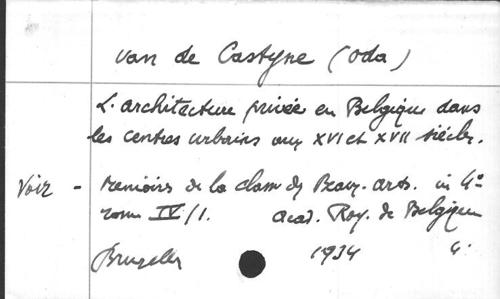 van de Castyne (Oda)
L'architecture privée en Belgique dans
les centres urbains aux XVI et XVII siècles.
Voir - Memoirs de la classe des Beaux-arts. in 4°
tom IV/1. Acad. Roy. de Belgique
Bruxelles 1934 4°